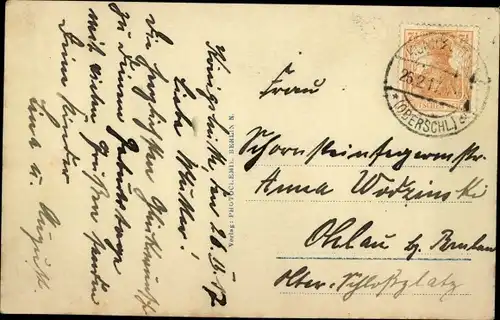 Königshütte, den 26.II.17
Liebe Mutter!
Die herzlichsten Glückwünsche
zu Deinem Geburtstage
mit vielen Grüßen senden
Deine Kinder
August
Verlag: PHOTOCHEMIE, BERLIN N.
7½
26.2.17
*(OBERSCHL.)
Frau
Schornsteinfegermstr.
Anna Wodzinski
Ohlau bz. Breslau
Schloßplatz